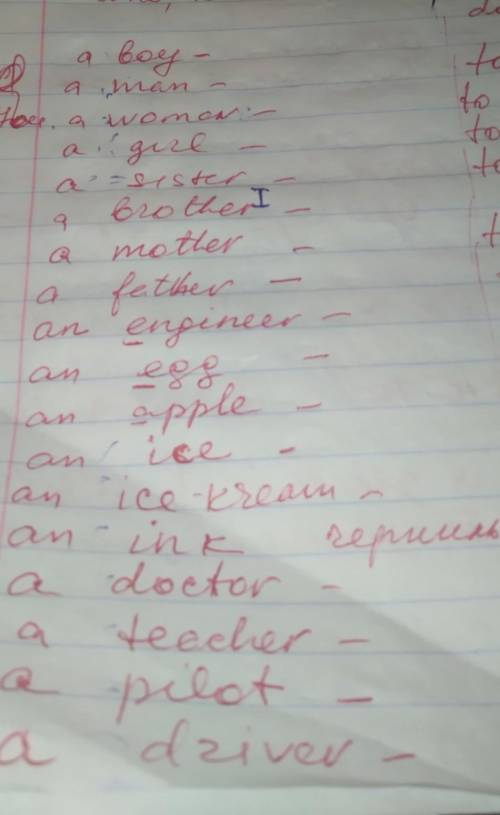 a boy -
a man -
a woman -
a girl -
a sister -
a brother -
a mother -
a father -
an engineer -
an egg -
an apple -
an ice -
an ice-kream -
an ink
a doctor -
a teacher -
a pilot -
a driver -
to
to
to
to